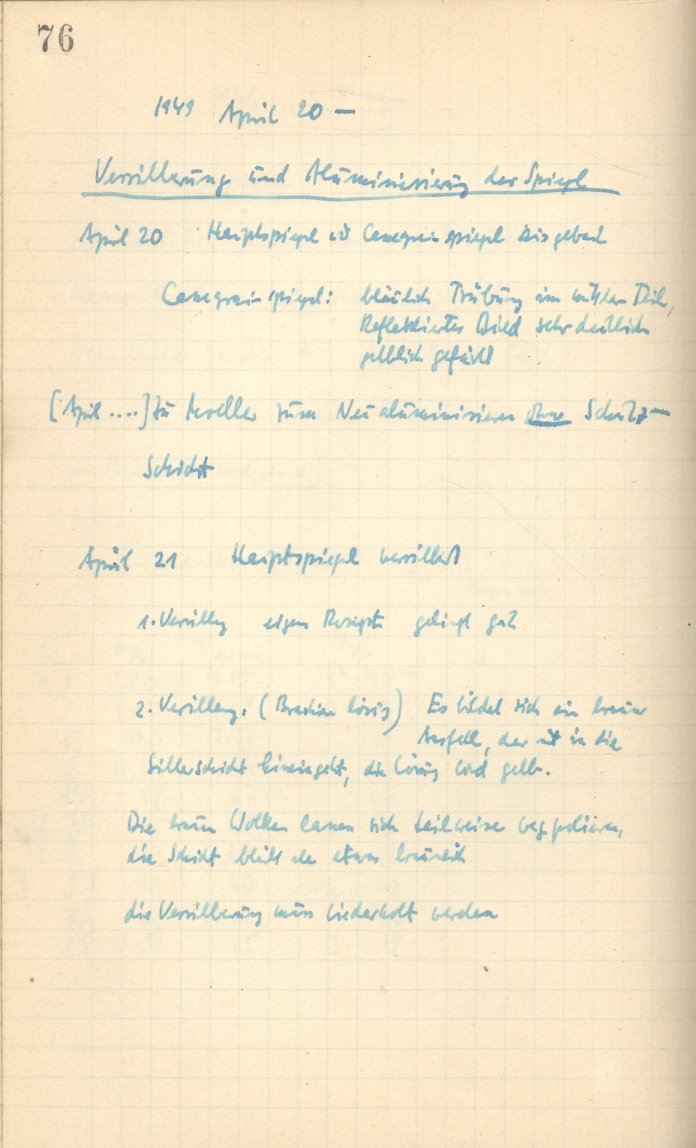 76
1949 April 20 —
Versilberung und Aluminisierung der Spiegel
April 20 Hauptspiegel und Cassegrainspiegel ausgebaut
Cassegrainspiegel: bläulich Trübung im mittleren Teil,
Reflektiertes Bild sehr deutlich
gelblich gefärbt
[April ....] zu zum Neualuminisieren ohne Schutz-
Schicht
April 21 Hauptspiegel versilbert
1. Versilberg eigen Rezept gelingt gut
2. Versilberg. ( Lösung) Es bildet sich ein brauner
Ausfall, der mit in die
Silberschicht hineingeht, die Lösung wird gelb.
Die braun Wolken lassen sich teilweise wegpolieren,
die Schicht bleibt etwas bräunlich
die Versilberung muss wiederholt werden